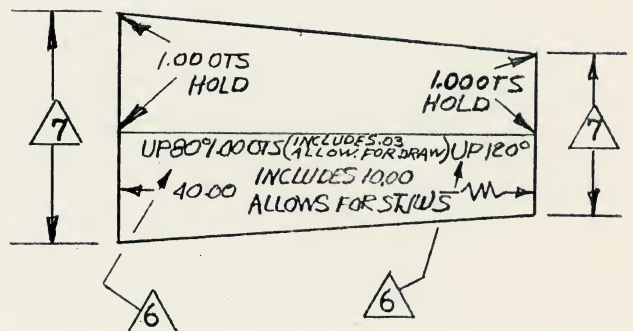 1.00 OTS
HOLD
1.00 OTS
HOLD
7
7
UP 80° 1.00 OTS (INCLUDES .03
ALLOW. FOR DRAW) UP 120°
40.00 INCLUDES 10.00
ALLOWS FOR
6
6